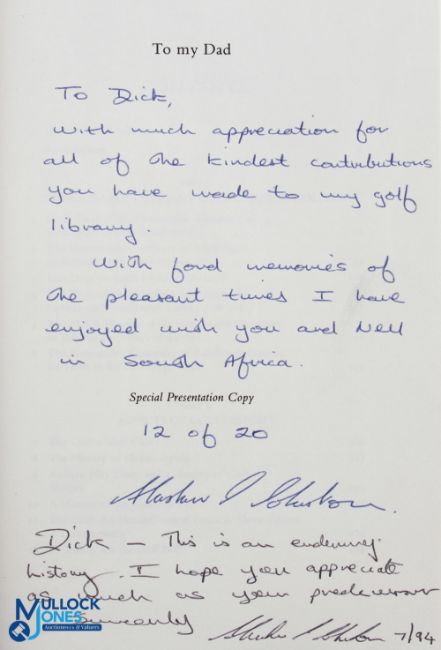 To my Dad
To Dick,
With much appreciation for
all of the kindest contributions
you have made to my golf
library.
With fond memories of
the pleasant times I have
enjoyed with you and Nell
in South Africa.
Special Presentation Copy
12 of 20
Alastair J Johnston.
Dick – This is an enduring
history. I hope you appreciate
as much as your predecessor
Sincerely
7/94
MULLOCK
JONES
Auctioneers & Valuers